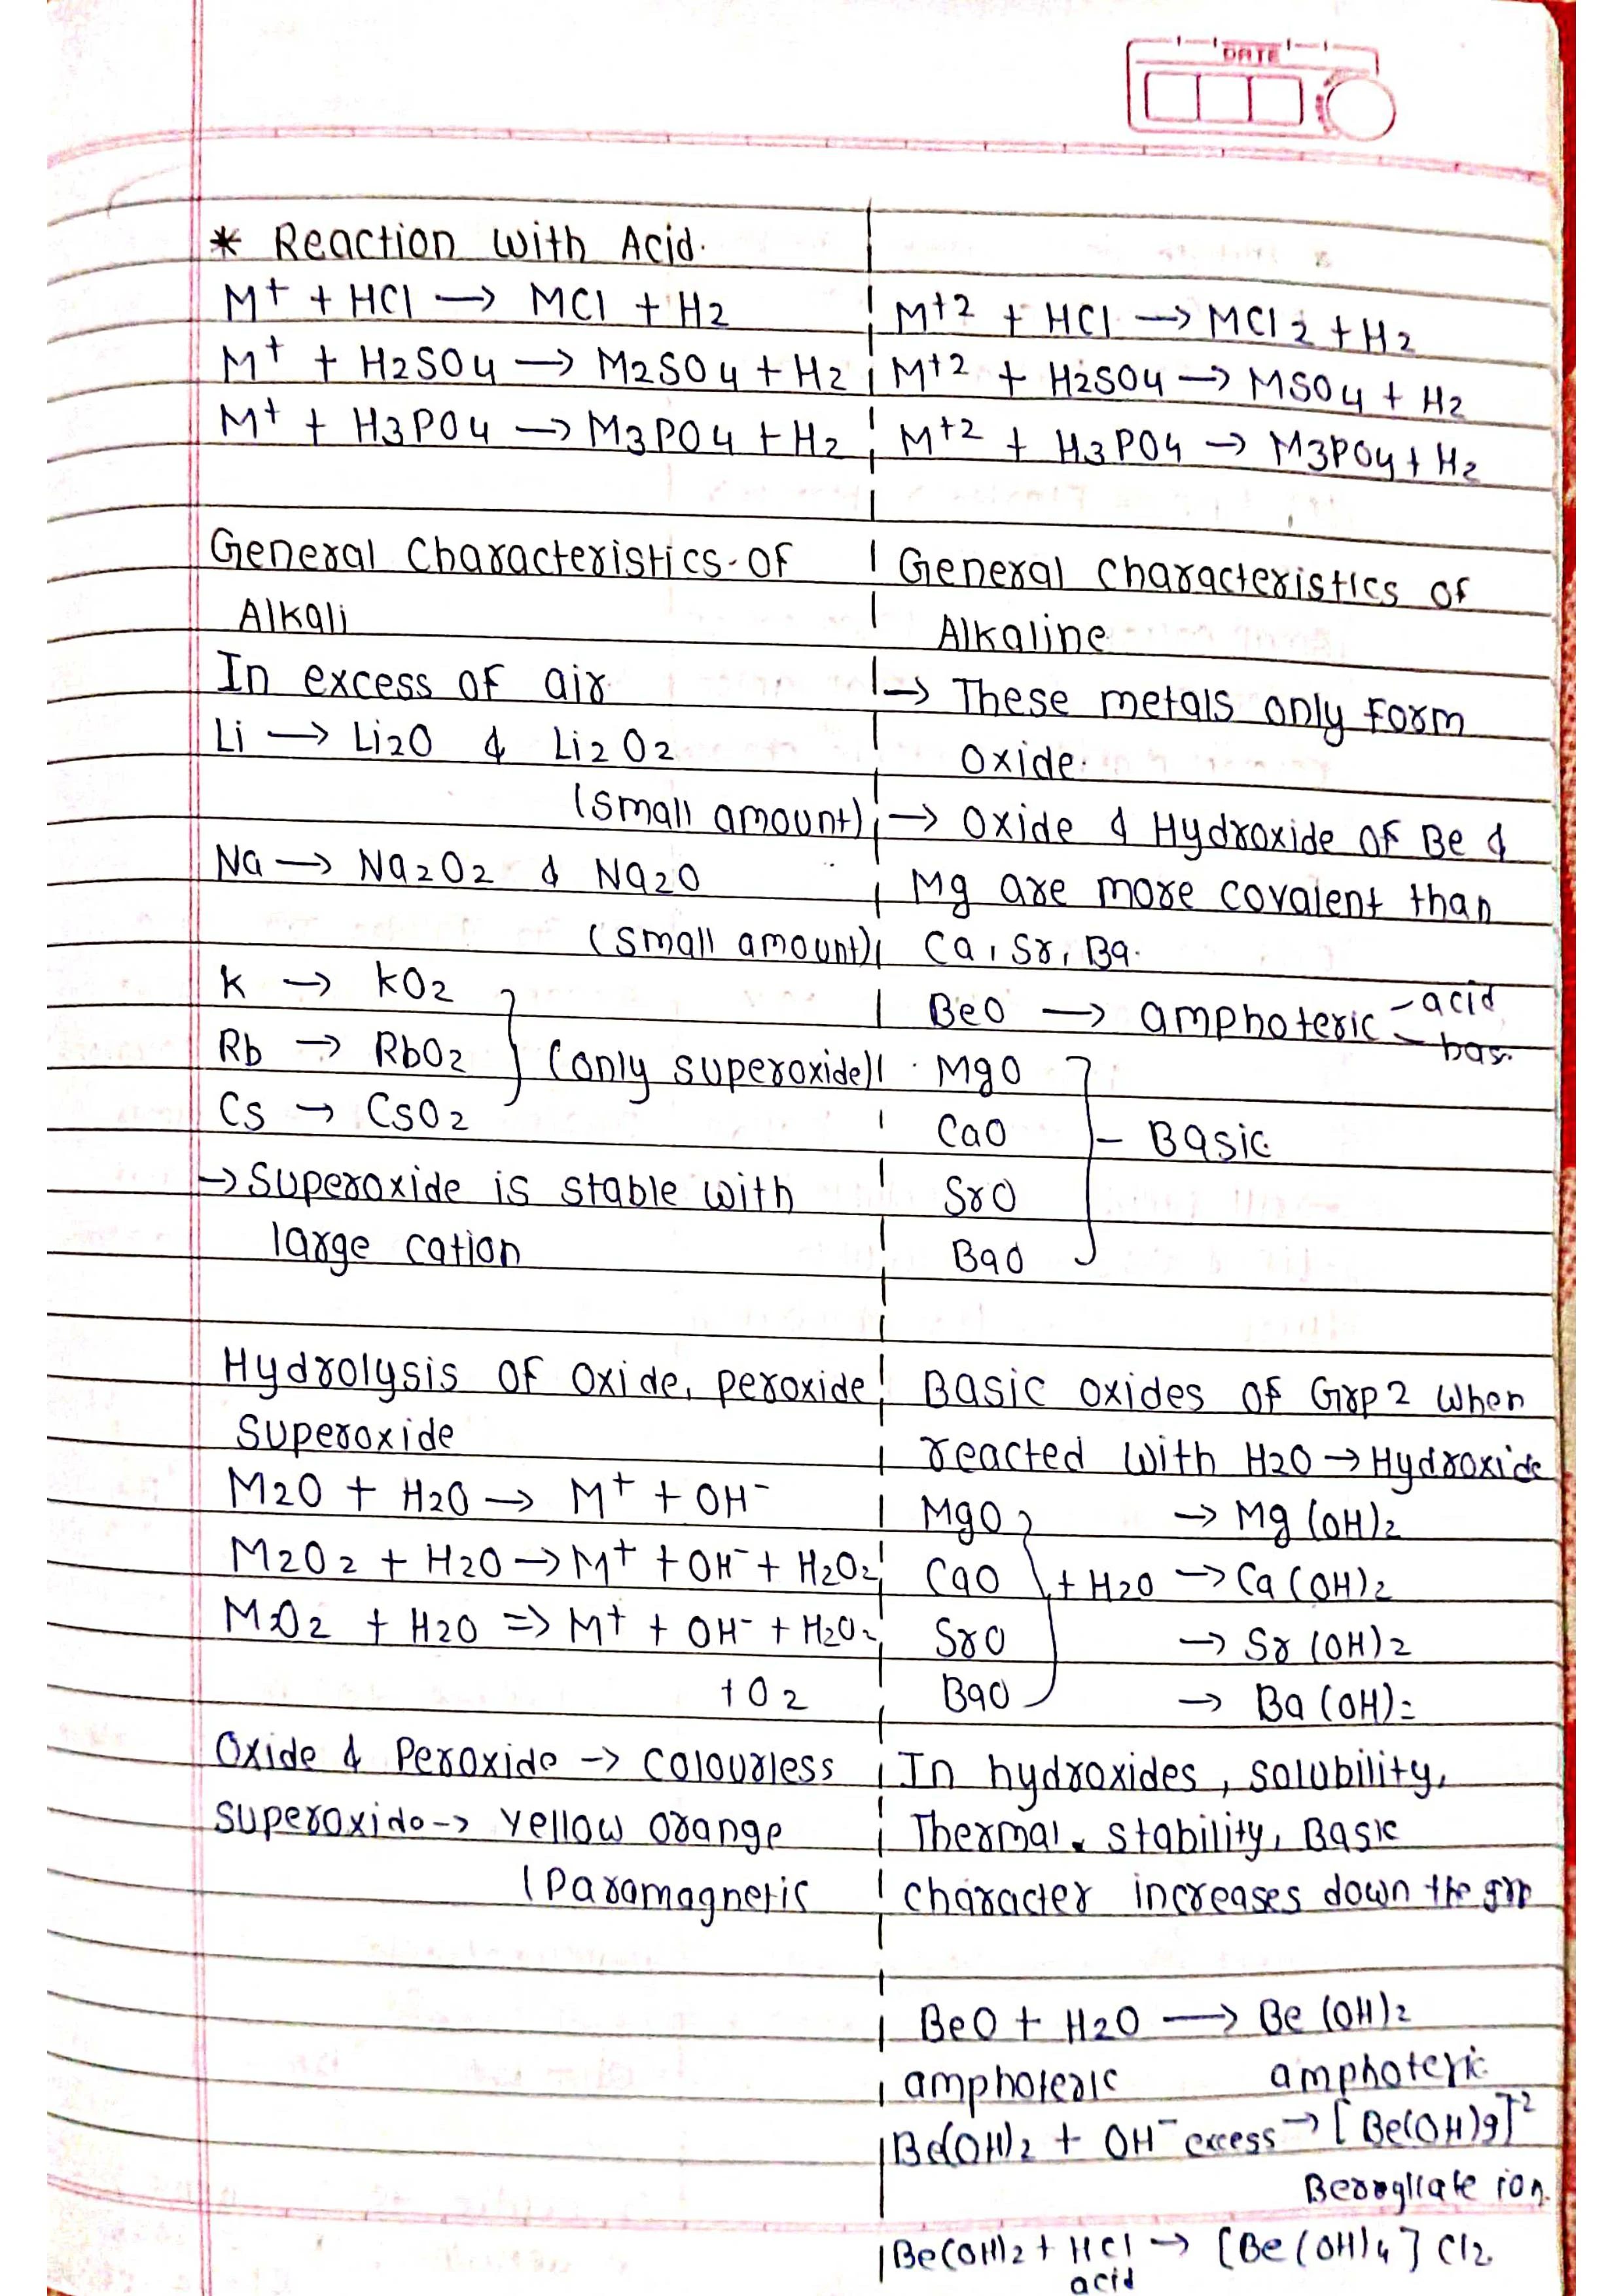 DATE
* Reaction with Acid.
M+ + HCl → MCl + H2
M+ + H2SO4 → M2SO4 + H2
M+ + H3PO4 → M3PO4 + H2
General Characteristics of
Alkali
In excess of air
Li → Li2O & Li2O2
(small amount)
Na → Na2O2 & Na2O
(small amount)
K → KO2
Rb → RbO2 } (only superoxide)
Cs → CsO2
→ Superoxide is stable with
large cation
Hydrolysis of Oxide, peroxide
Superoxide
M2O + H2O → M+ + OH-
M2O2 + H2O → M+ + OH- + H2O2
MO2 + H2O => M+ + OH- + H2O2
+ O2
Oxide & Peroxide -> colourless
Superoxide -> yellow orange
(Paramagnetic
M+2 + HCl → MCl2 + H2
M+2 + H2SO4 → MSO4 + H2
M+2 + H3PO4 → M3PO4 + H2
General characteristics of
Alkaline
→ These metals only form
Oxide.
→ Oxide & Hydroxide of Be &
Mg are more covalent than
Ca, Sr, Ba.
BeO → amphoteric - acid
- bas.
MgO
CaO } - Basic
SrO
BaO
Basic oxides of Grp 2 when
reacted with H2O → Hydroxide
MgO → Mg(OH)2
CaO } + H2O → Ca(OH)2
SrO → Sr(OH)2
BaO → Ba(OH)2
In hydroxides, solubility,
Thermal stability, Basic
character increases down the grp
BeO + H2O → Be(OH)2
amphoteric amphoteric
Be(OH)2 + OH- excess → [Be(OH)4]-2
ion.
Be(OH)2 + HCl → [Be(OH)4] Cl2
acid